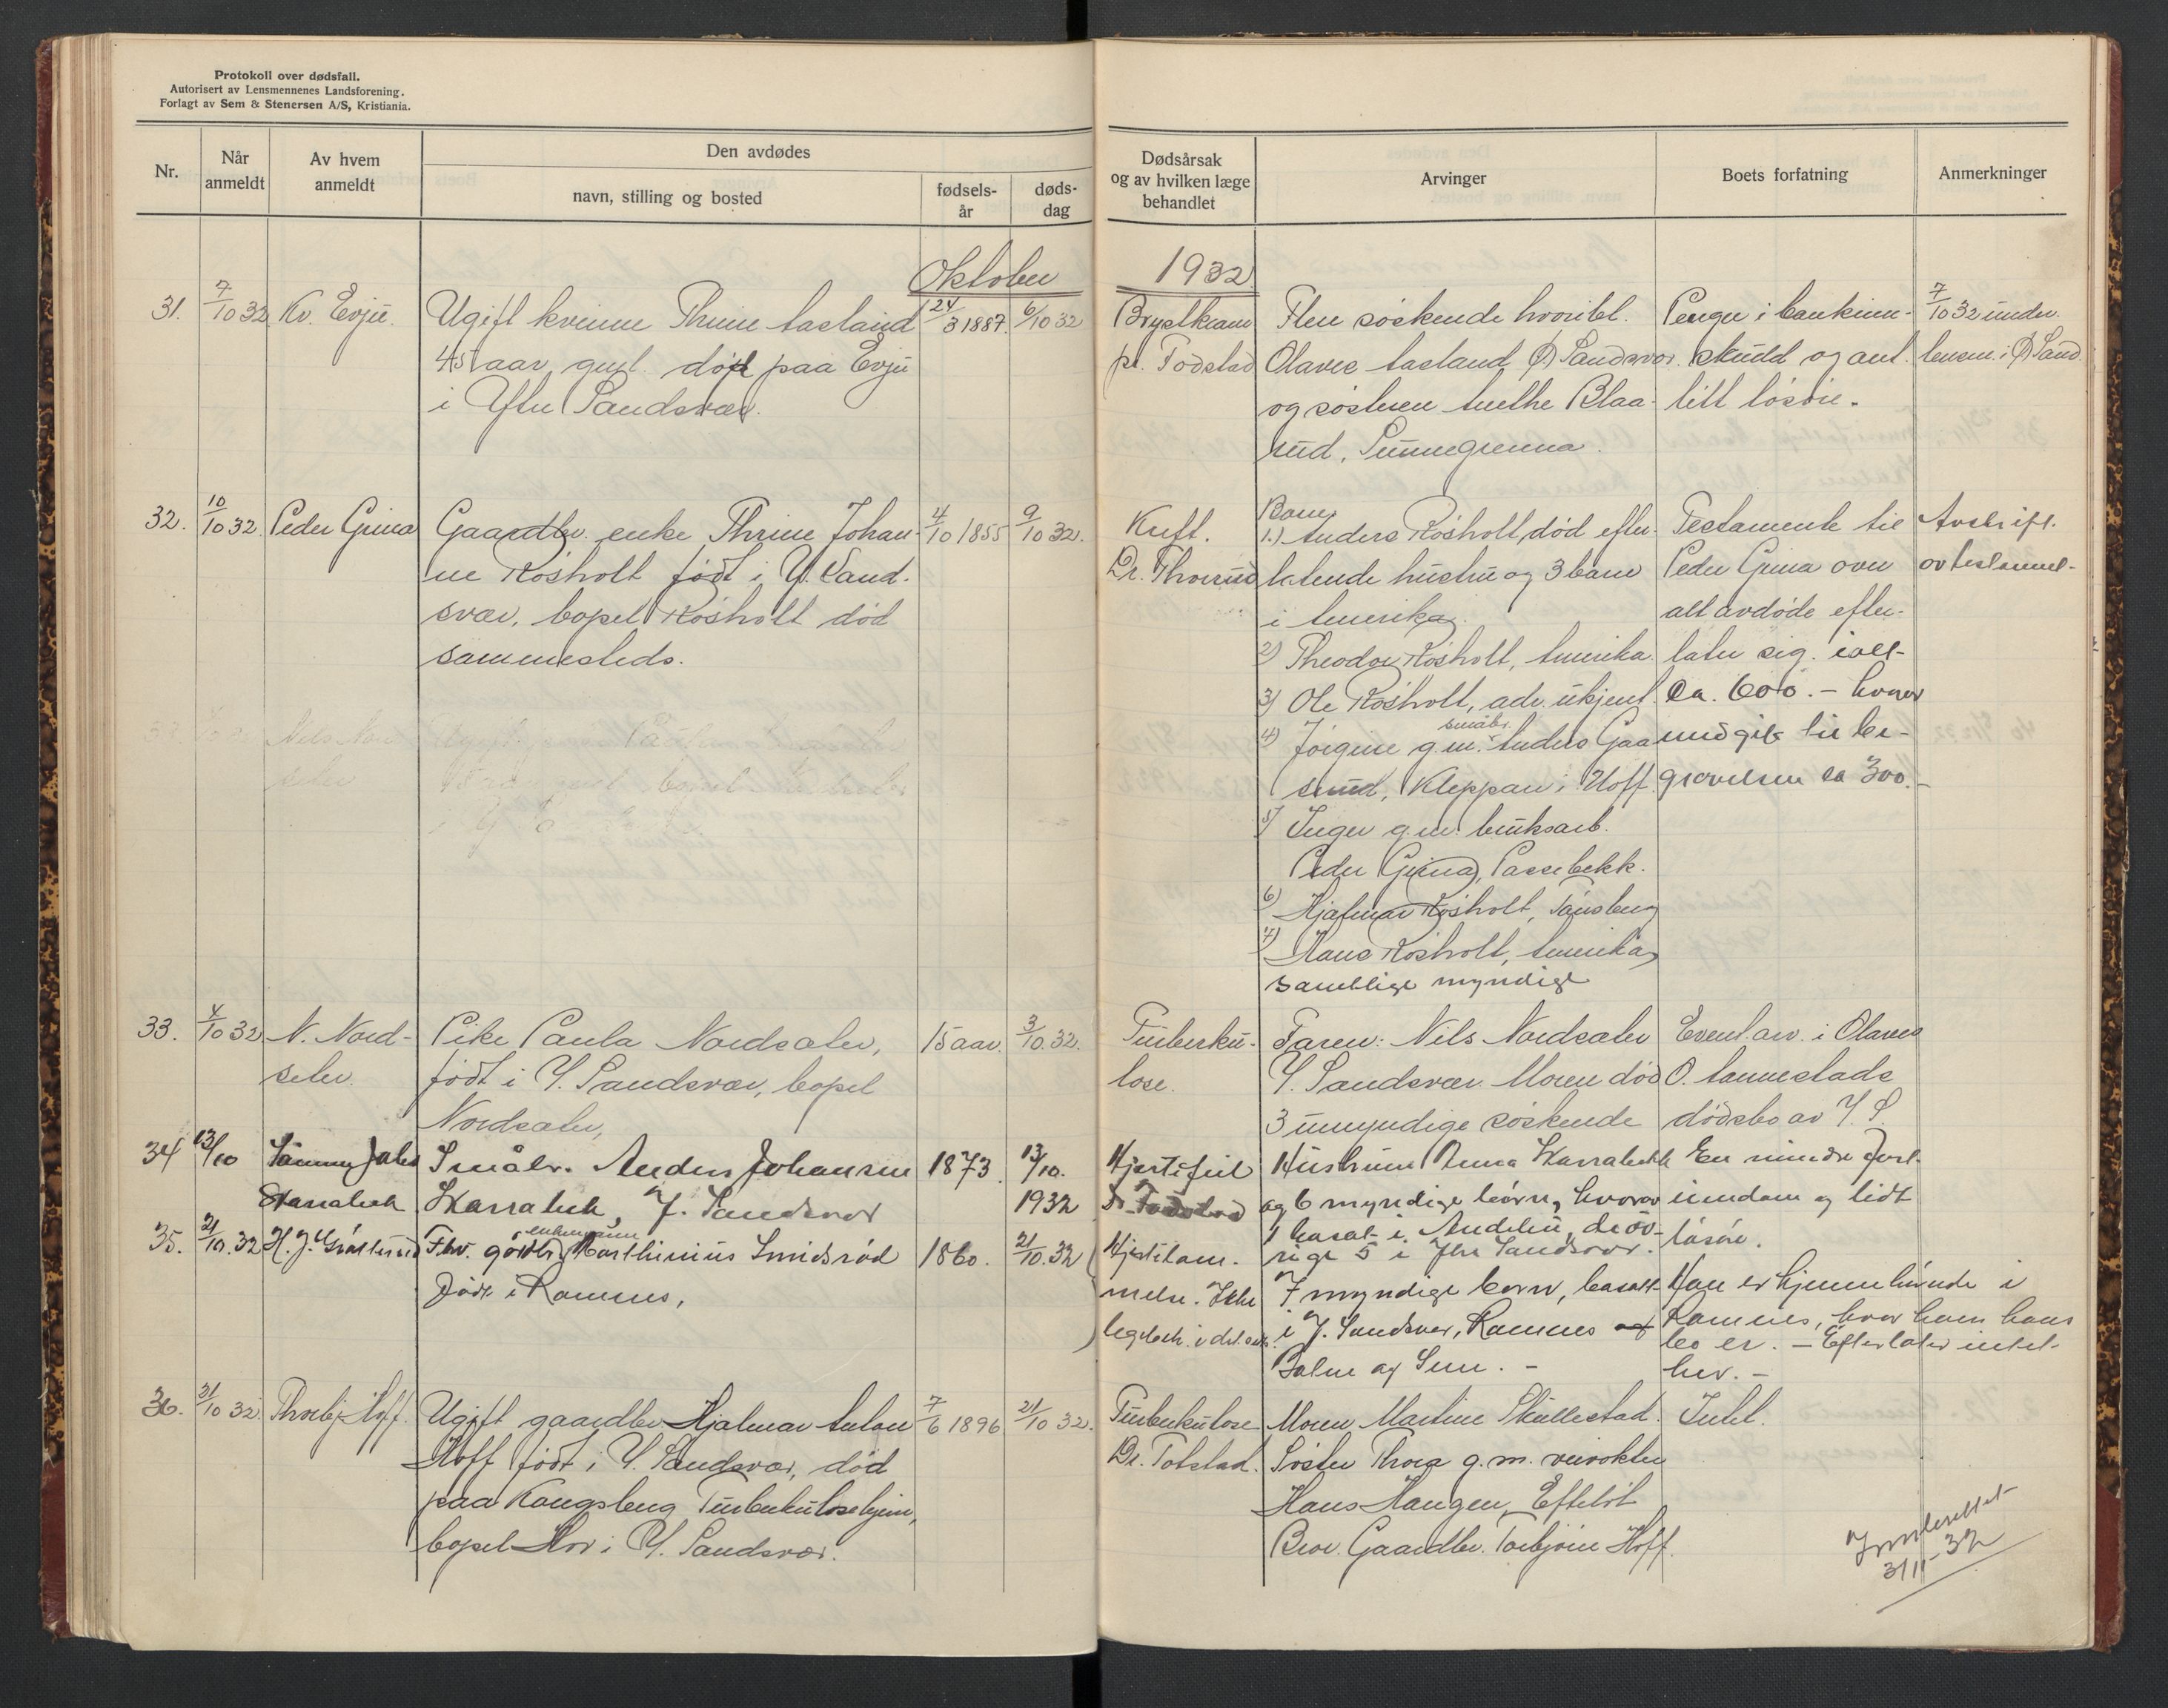 Protokoll over dødsfall.
Autorisert av Lensmennenes Landsforening.
Forlagt av Sem & Stenersen A/S, Kristiania.
Nr.
Når anmeldt
Av hvem anmeldt
Den avdødes
navn, stilling og bosted
fødsels-år
døds-dag
Dødsårsak og av hvilken læge behandlet
Arvinger
Boets forfatning
Anmerkninger
Oktober 1932
31. 7/10 32 Kv. Evju.
Ugift kvinne Thrine Aasland
45 aar gml. død paa Evju
i Ytre Sandsvær.
24/3 1887. 6/10 32
Brystkram
Dr. Todstad
Flere søskende hvoribl.
Olaves Aasland Ø. Sandsvær.
og søsteren Anethe Blaa-
rud, Sunnegrenna.
Penger i bankinn-
skudd og ant.
litt løsøre.
7/10 32 under.
lensm. i Ø. Sand.
32. 10/10 32 Peder Grina
Gaardbr. enke Thrine Johan-
ne Røsholt født i Y. Sand-
svær, bopel Røsholt død
sammesteds.
4/10 1855 9/10 32.
Kreft.
Dr. Thorrud
Barn
1.) Anders Røsholt, død efter-
latende hustru og 3 barn
i Amerika.
2) Theodor Røsholt, Amerika
3) Ole Røsholt, adr. ukjent
4) Jørgine g.m. småbr. Anders Gaa
srud, Kleppan i Hoff.
5) Inger g.m. bruksarb.
Peder Grina, Passebekk.
6) Hjalmar Røsholt, Tønsberg
7) Hans Røsholt, Amerika
samtlige myndige
Testamente til
Peder Grina over
alt avdøde efter-
later sig. ialt
ca. 600.- hvorav
medgik til be-
gravelsen ca 300.-
Avskrift
av testament-
33. 4/10 32 N. Nord-
seter.
Pike Paula Nordseter,
født i Y. Sandsvær, bopel
Nordseter,
15 aar. 3/10. 32.
Tuberku-
lose.
Faren: Nils Nordseter
Y. Sandsvær. Moren død
3 umyndige søskende
Event. arv i Olaves
O. Sannestads
dødsbo av Y. S.
34 13/10
Småbr. Anders Johansen
Skarrabek, Y. Sandsvær
1873. 13/10. 1932
Hjertefeil
Dr. Todstad
Hustruen Anna Skarrabekk
og 6 myndige børn, hvorav
1 bosat i Andebu, de øv-
rige 5 i Ytre Sandsvær.
En mindre fast-
eiendom og lidt
løsøre.
35. 21/10. 32
Fhv. gårdbr. enkemann Marthinius Smidsrød
født i Ramnes,
1860. 21/10. 32
Hjertelam-
melse. Ikke
7 myndige barn, bosatt
i Y. Sandsvær, Ramnes og
Botne og Sem. -
Han er hjemmehørende i
Ramnes, hvor han hans
bo er. - Efterlater intet
her. -
36. 31/10 32 Thorbj. Hoff.
Ugift gaardbr. Hjalmar Anton
Hoff født i Y. Sandsvær, død
paa Kongsberg Tuberkulosehjem,
bopel Hov i Y. Sandsvær.
7/6 1896 21/10 32.
Tuberkulose
Dr. Totstad.
Moren Martine Skullestad.
Søster Thora g.m. veivokter
Hans Haugen, Efteløt
Bror. Gaardbr. Torbjørn Hoff.
Intet.
Innberettet
3/11-32